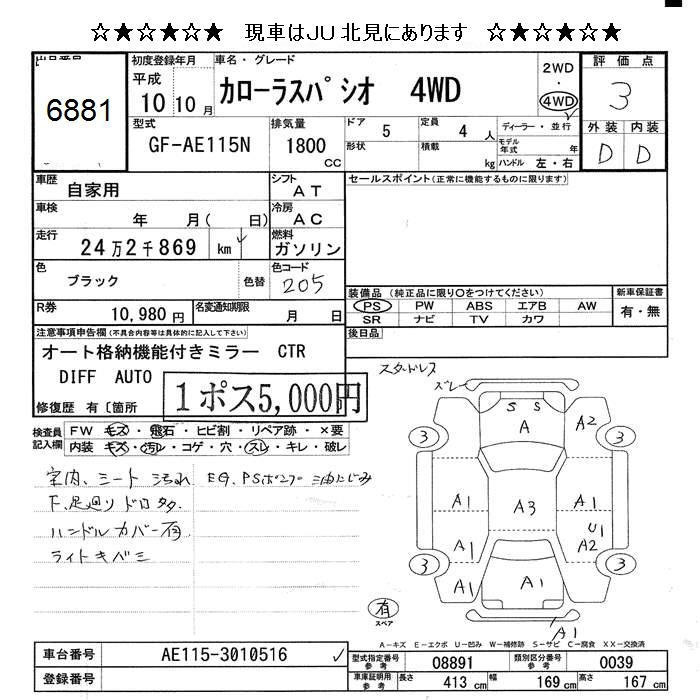 ☆★☆★☆★ 現車はJU北見にあります ☆★☆★☆★
出品番号
6881
初度登録年月
平成
10 10 月
車名・グレード
カローラスパシオ 4WD
2WD
・
4WD
評価点
3
型式
GF-AE115N
排気量
1800
CC
ドア
5
形状
定員
4 人
積載
kg
ディーラー・並行
モデル年式 年
ハンドル 左・右
外装 内装
D D
車歴
自家用
シフト
AT
セールスポイント(正常に機能するものに限ります)
車検
年 月( 日)
冷房
AC
走行
24万2千869 km
燃料
ガソリン
色
ブラック
色替
色コード
205
装備品(純正品に限り○をつけてください)
PS PW ABS エアB AW
SR ナビ TV カワ
新車保証書
有・無
R券
10,980 円
名変通知期限
月 日
後日品
注意事項申告欄(不具合内容等は具体的に記入して下さい)
オート格納機能付きミラー CTR
DIFF AUTO
1ポス5,000円
修復歴 有〔箇所
検査員記入欄
FW キズ・飛石・ヒビ割・リペア跡・×要
内装 キズ・汚レ・コゲ・穴・スレ・キレ・破レ
室内、シート 汚れ EG、PSポンプー油にじみ
F.足廻りドロ多
ハンドルカバー有
ライトキバミ
スタッドレス
ズレ
S S
A
A2
3
3
A1
A3
A1
A1
U1
A2
3
3
A1
A1
A1
有
スペア
A1
A-キズ E-エクボ U-凹み W-補修跡 S-サビ C-腐食 XX-交換済
車台番号
AE115-3010516
登録番号
型式指定番号
参考
08891
類別区分番号
参考
0039
車庫証明用
参考
長さ 413 cm
幅 169 cm
高さ 167 cm